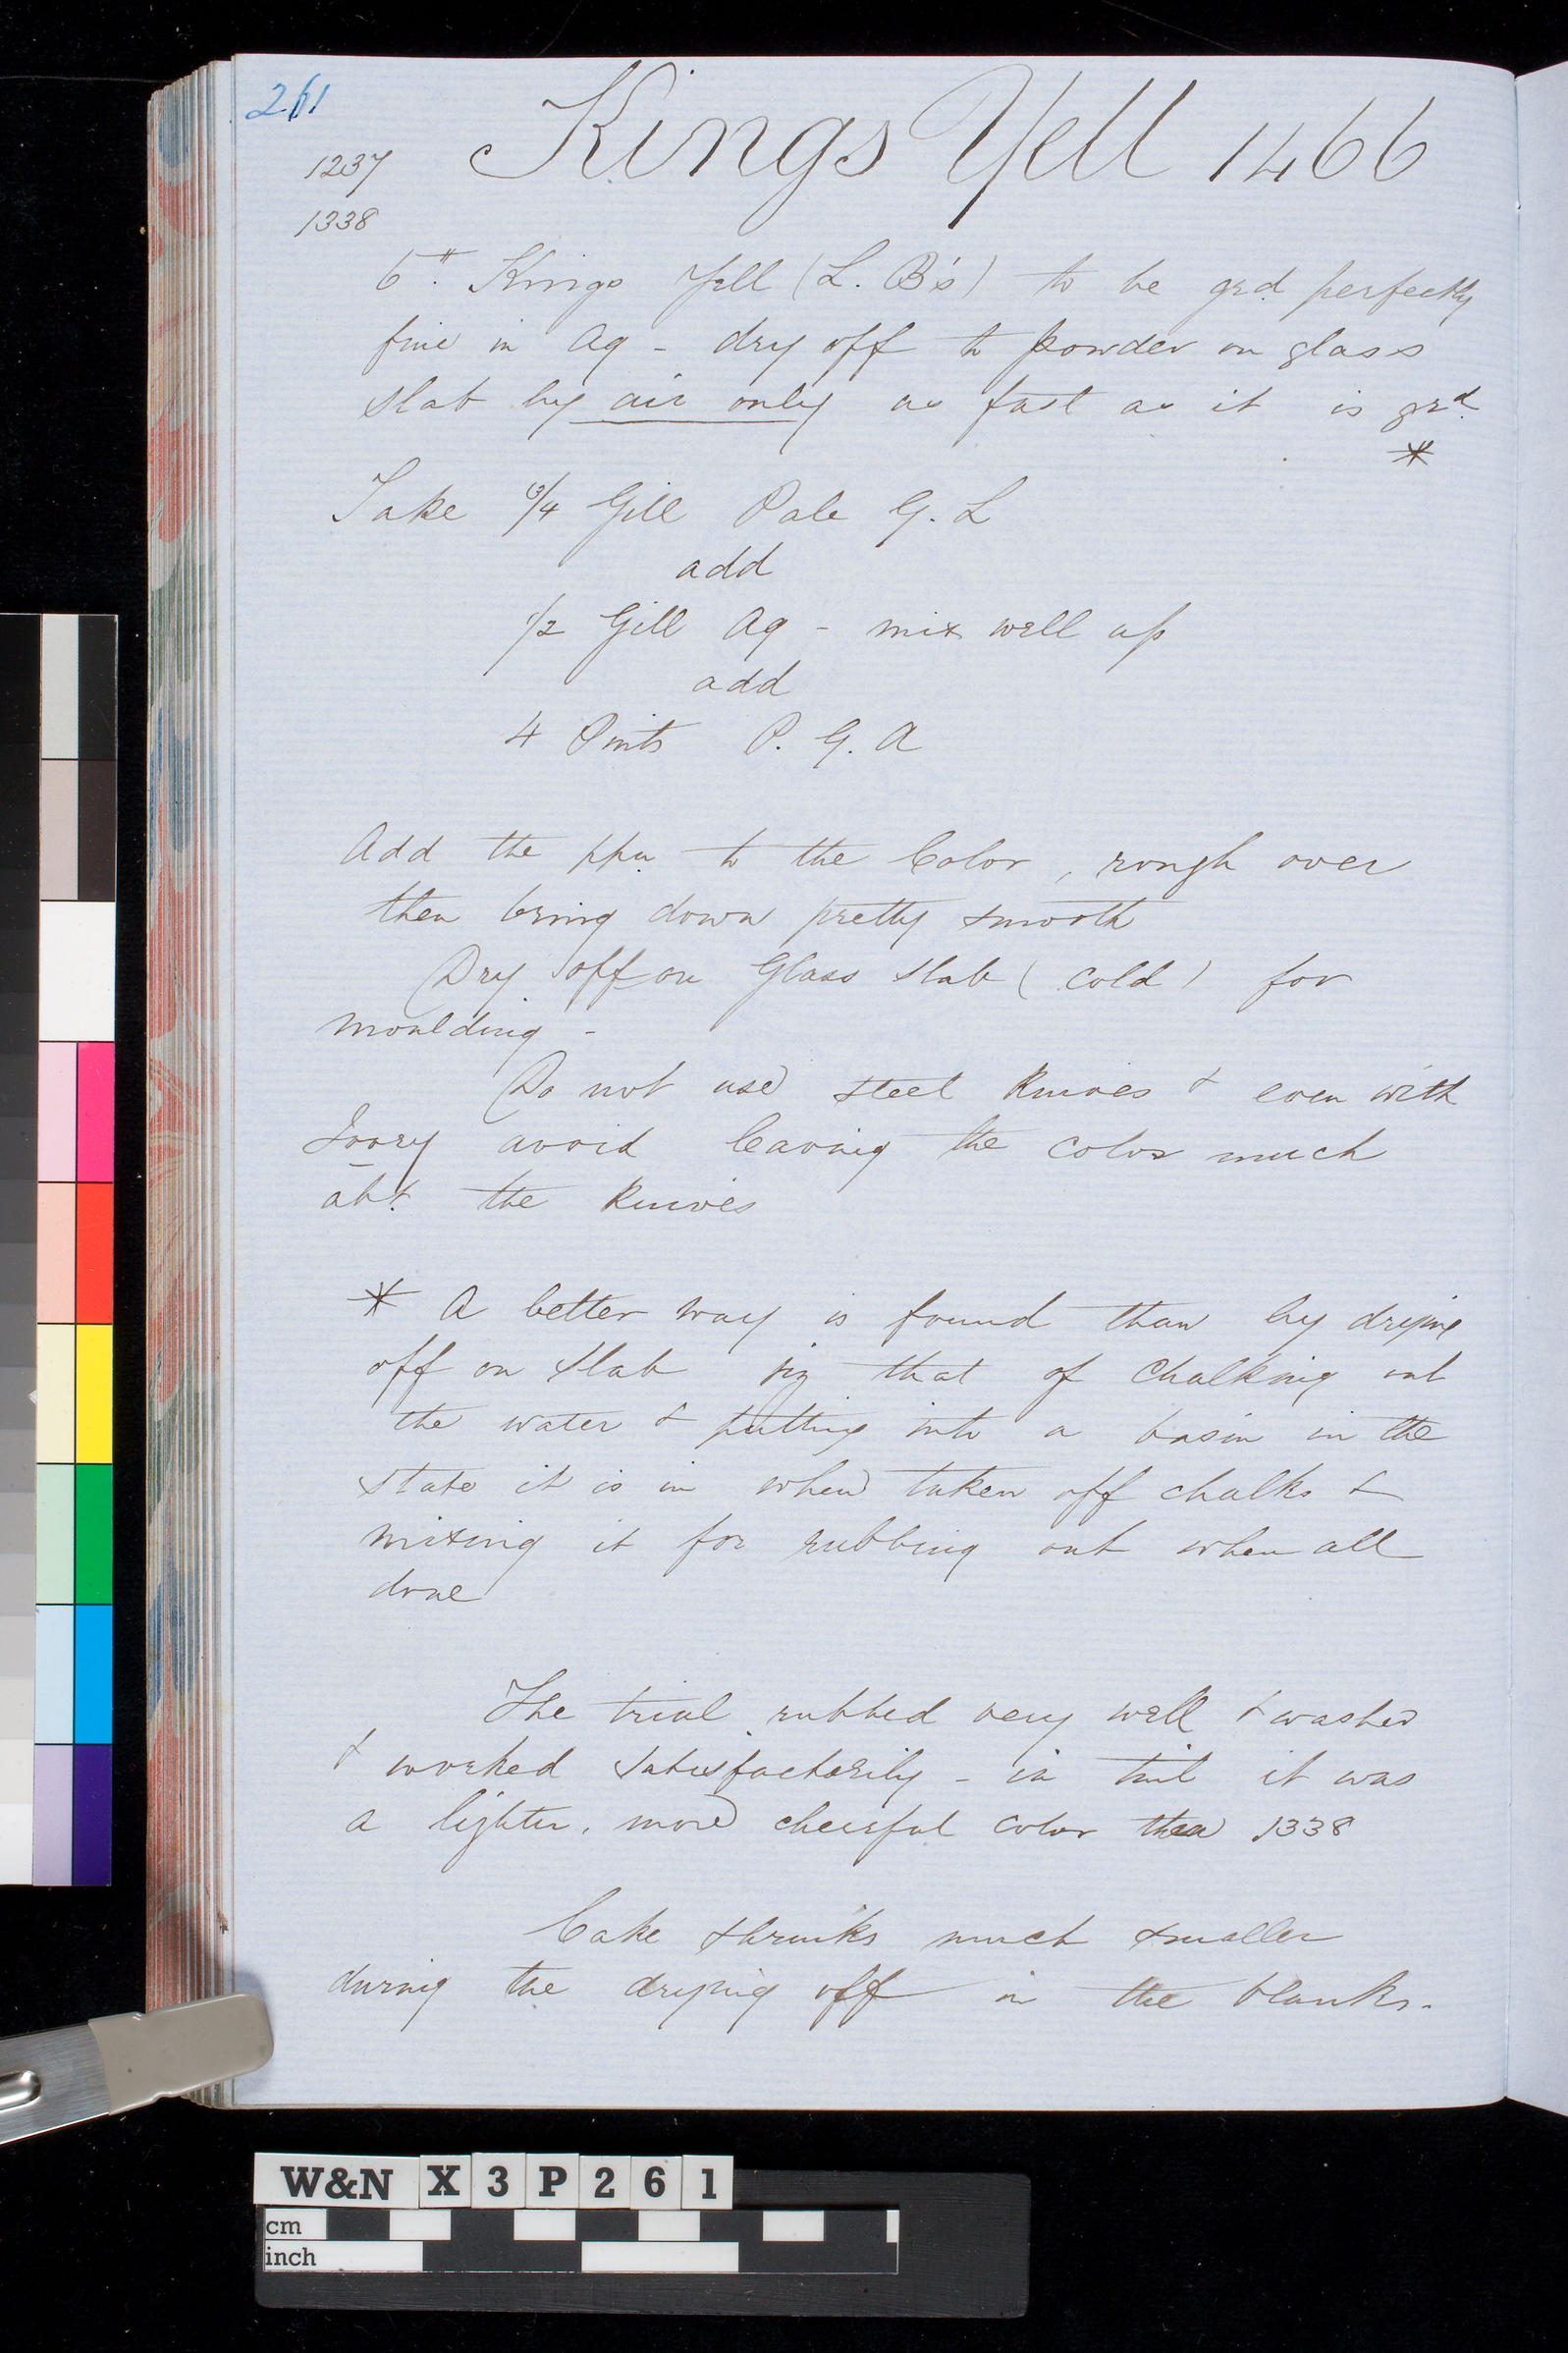 261
Kings Yell 1466
1237
1338
6 ". Kings Yell (L. B's) to be grd perfectly
fine in Aq - dry off to powder on glass
slab by air only as fast as it is grd.
*
Take 3/4 Gill Pale G. L
add
1/2 Gill Aq - mix well up
add
4 Pints P. G. A
Add the ppn to the Color, rough over
then bring down pretty smooth
Dry off on Glass slab (cold) for
moulding -
Do not use steel knives & even with
Ivory avoid leaving the color much
abt. the knives
* A better way is found than by drying
off on slab viz that of Chalking out
the water & putting into a basin in the
state it is in when taken off chalks &
mixing it for rubbing out when all
done
The trial rubbed very well & washed
& worked satisfactorily - in tint it was
a lighter, more cheerful color than 1338
Cake shrinks much smaller
during the drying off in the blanks.
W&N X 3 P 2 6 1
cm
inch